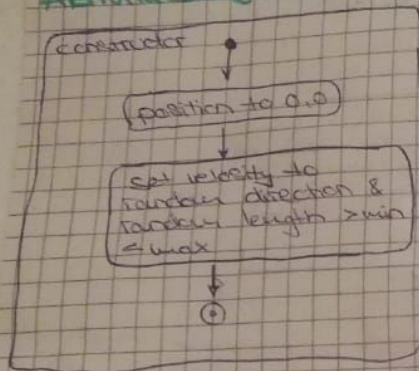 constructor
position to 0,0
set velocity to
random direction &
random length >min
<max